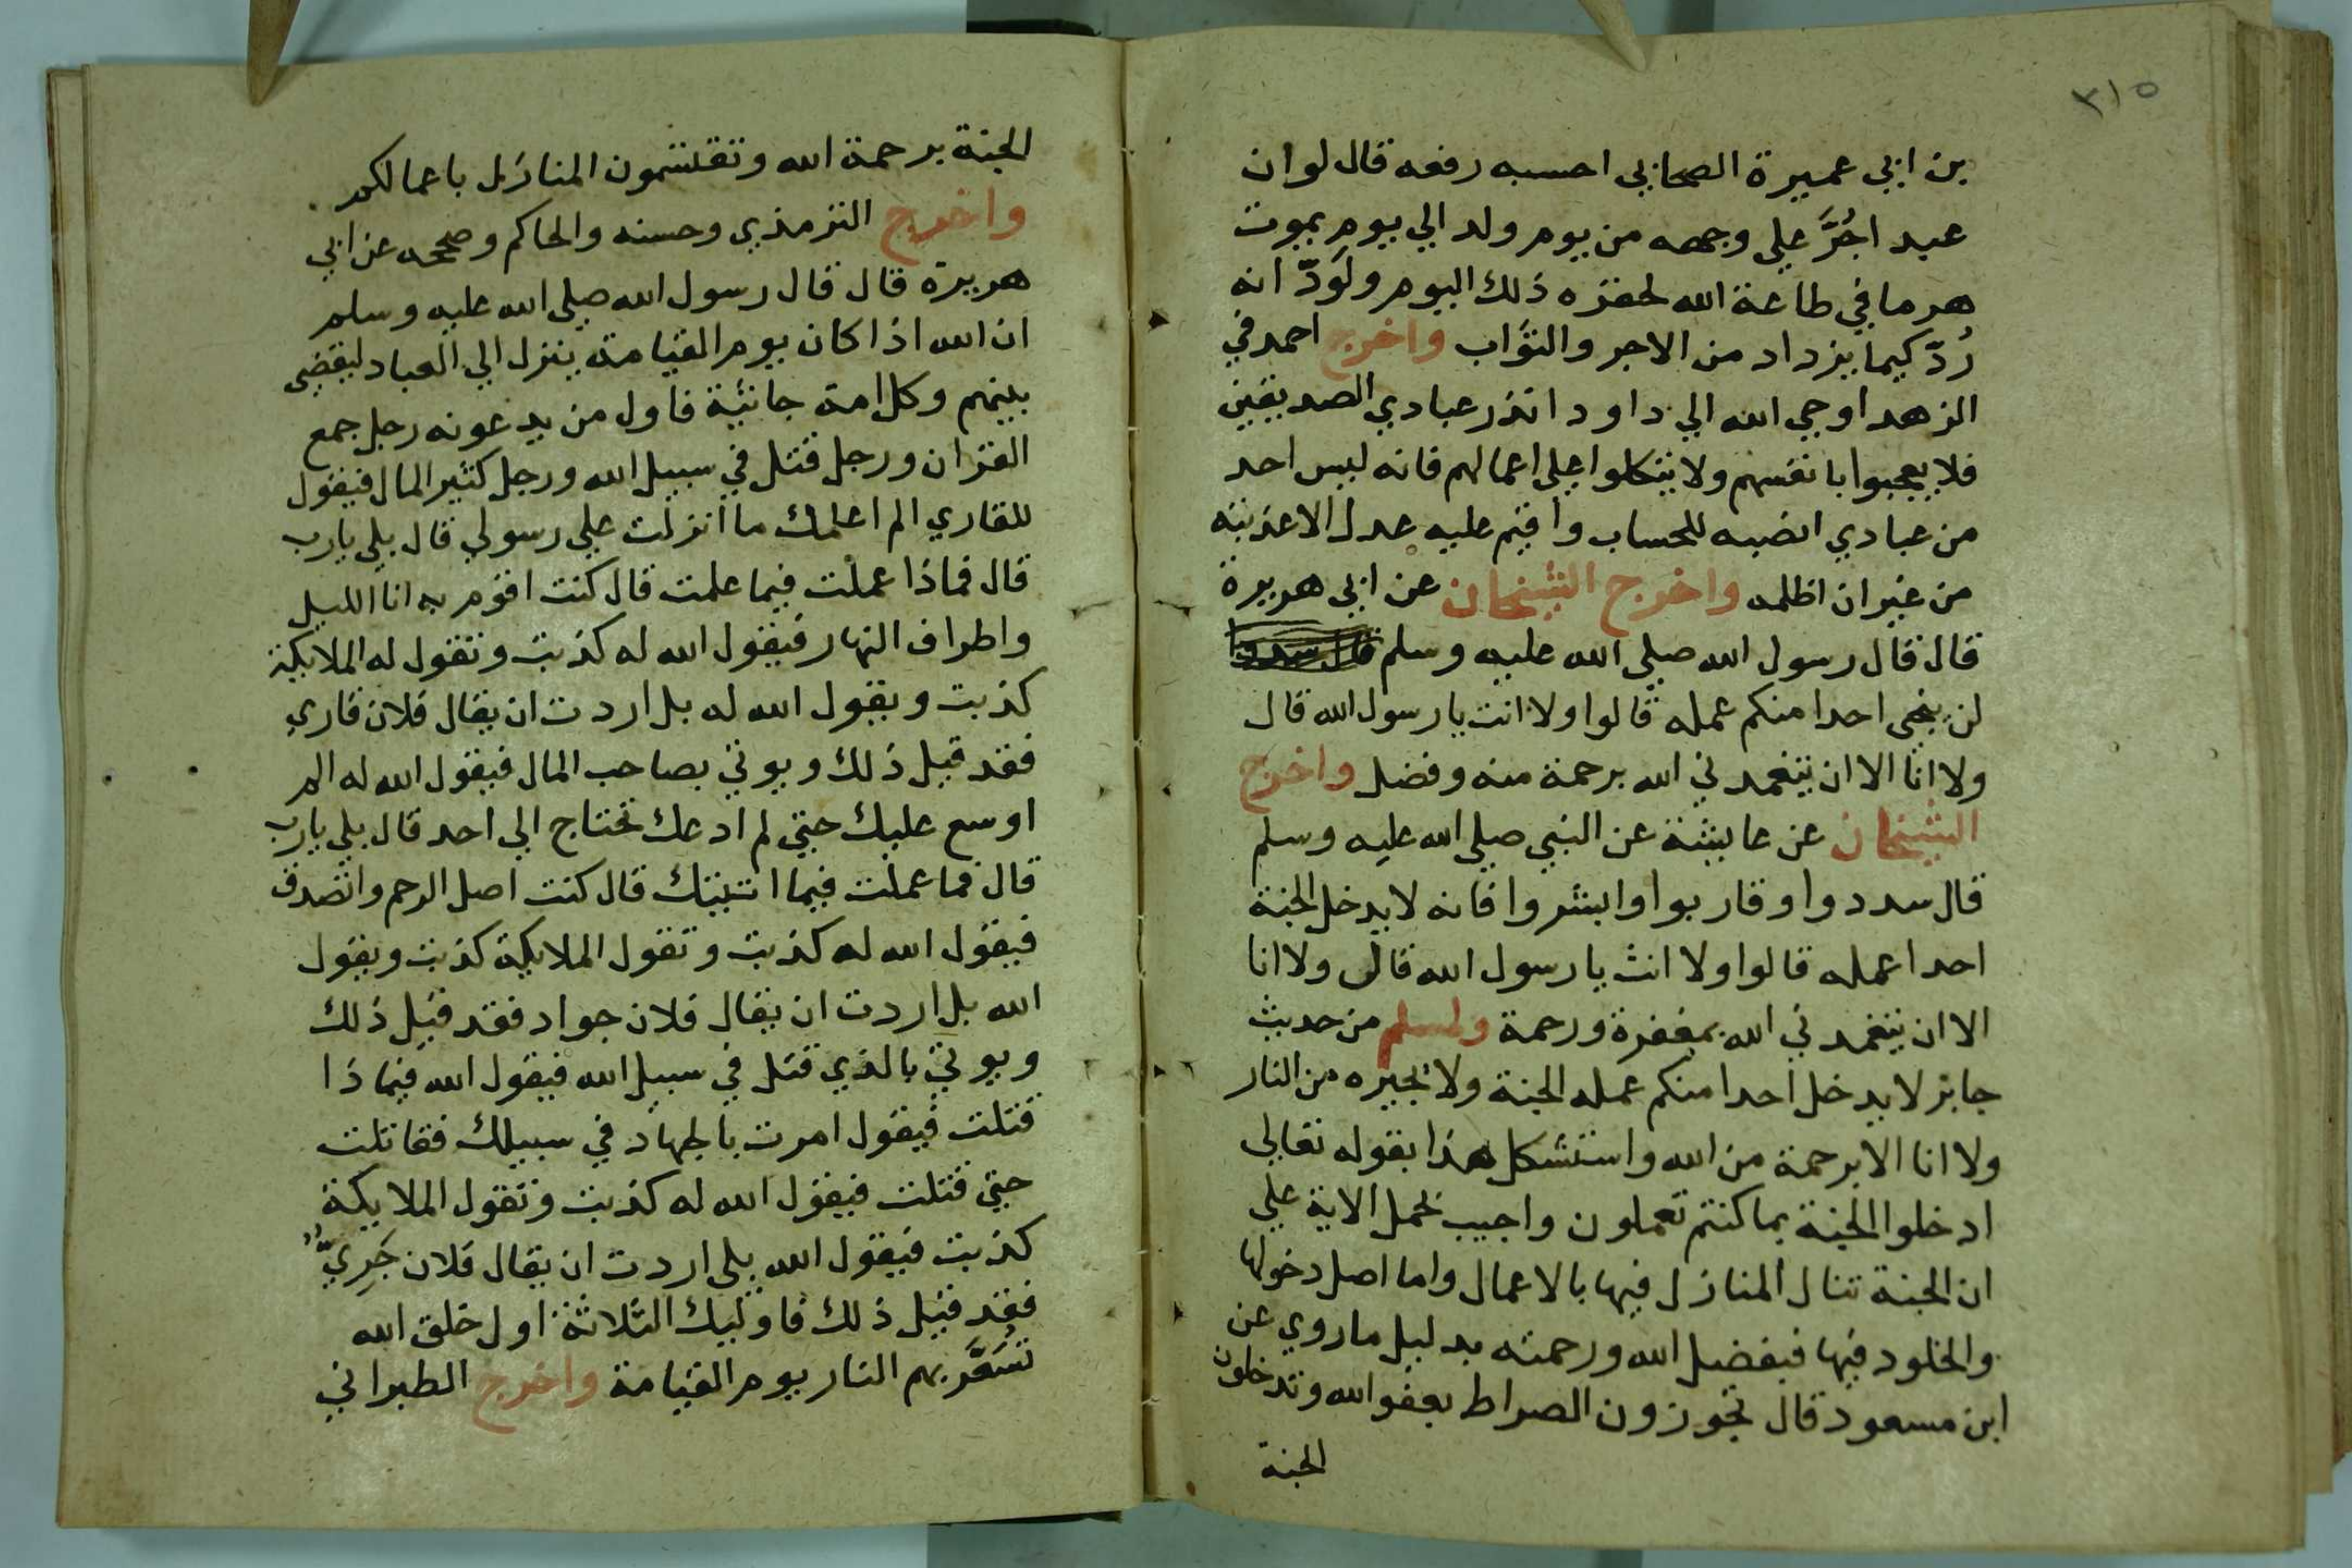 ٣١٥
بن ابي عميرة الصحابي احسبه رفعه قال لوان
عبد اجُرَّ علي وجهه من يوم ولد الي يوم يموت
هرما في طاعة الله لحقره ذلك اليوم ولَوَدّ انه
رُدّ كيما يزداد من الاجر والثواب واخرج احمد في
الزهد اوحي الله الي داود انذر عبادي الصديقين
فلا يعجبوا بانفسهم ولا يتكلوا علي اعمالهم فانه ليس احد
من عبادي انصبه للحساب واقيم عليه عدل الاعذبته
من غير ان اظلمه واخرج الشيخان عن ابي هريرة
قال قال رسول الله صلي الله عليه وسلم
لن ينجي احدا منكم عمله قالوا ولا انت يا رسول الله قال
ولا انا الا ان يتغمدني الله برحمة منه وفضل واخرج
الشيخان عن عايشة عن النبي صلي الله عليه وسلم
قال سددوا وقاربوا وابشروا فانه لا يدخل الجنة
احدا عمله قالوا ولا انت يا رسول الله قال ولا انا
الا ان يتغمدني الله بمغفرة ورحمة ولمسلم من حديث
جابر لا يدخل احدا منكم عمله الجنة ولا يجيره من النار
ولا انا الا برحمة من الله واستشكل هذا بقوله تعالي
ادخلوا الجنة بما كنتم تعملون واجيب بحمل الاية علي
ان الجنة تنال المنازل فيها بالاعمال واما اصل دخولها
والخلود فيها فبفضل الله ورحمته بدليل ما روي عن
ابن مسعود قال تجوزون الصراط بعفو الله وتدخلون
الجنة
الجنة برحمة الله وتقتسمون المنازل باعمالكم
واخرج الترمذي وحسنه والحاكم وصححه عن ابي
هريرة قال قال رسول الله صلي الله عليه وسلم
ان الله اذا كان يوم القيامة ينزل الي العباد ليقضي
بينهم وكل امة جاثية فاول من يدعونه رجل جمع
القران ورجل قتل في سبيل الله ورجل كثير المال فيقول
للقاري الم اعلمك ما انزلت علي رسولي قال بلي يا رب
قال فماذا عملت فيما علمت قال كنت اقوم به انا الليل
واطراف النهار فيقول الله له كذبت وتقول له الملايكة
كذبت ويقول الله له بل اردت ان يقال فلان قاري
فقد قيل ذلك ويوتي بصاحب المال فيقول الله له الم
اوسع عليك حتي لم ادعك تحتاج الي احد قال بلي يا رب
قال فما عملت فيما اتيتك قال كنت اصل الرحم واتصدق
فيقول الله له كذبت وتقول الملايكة كذبت ويقول
الله بل اردت ان يقال فلان جواد فقد قيل ذلك
ويوتي بالذي قتل في سبيل الله فيقول الله فيماذا
قتلت فيقول امرت بالجهاد في سبيلك فقاتلت
حتي قتلت فيقول الله له كذبت وتقول الملايكة
كذبت فيقول الله بلي اردت ان يقال فلان جَرِيّ
فقد قيل ذلك فاوليك الثلاثة اول خلق الله
تُسَعَّر بهم النار يوم القيامة واخرج الطبراني